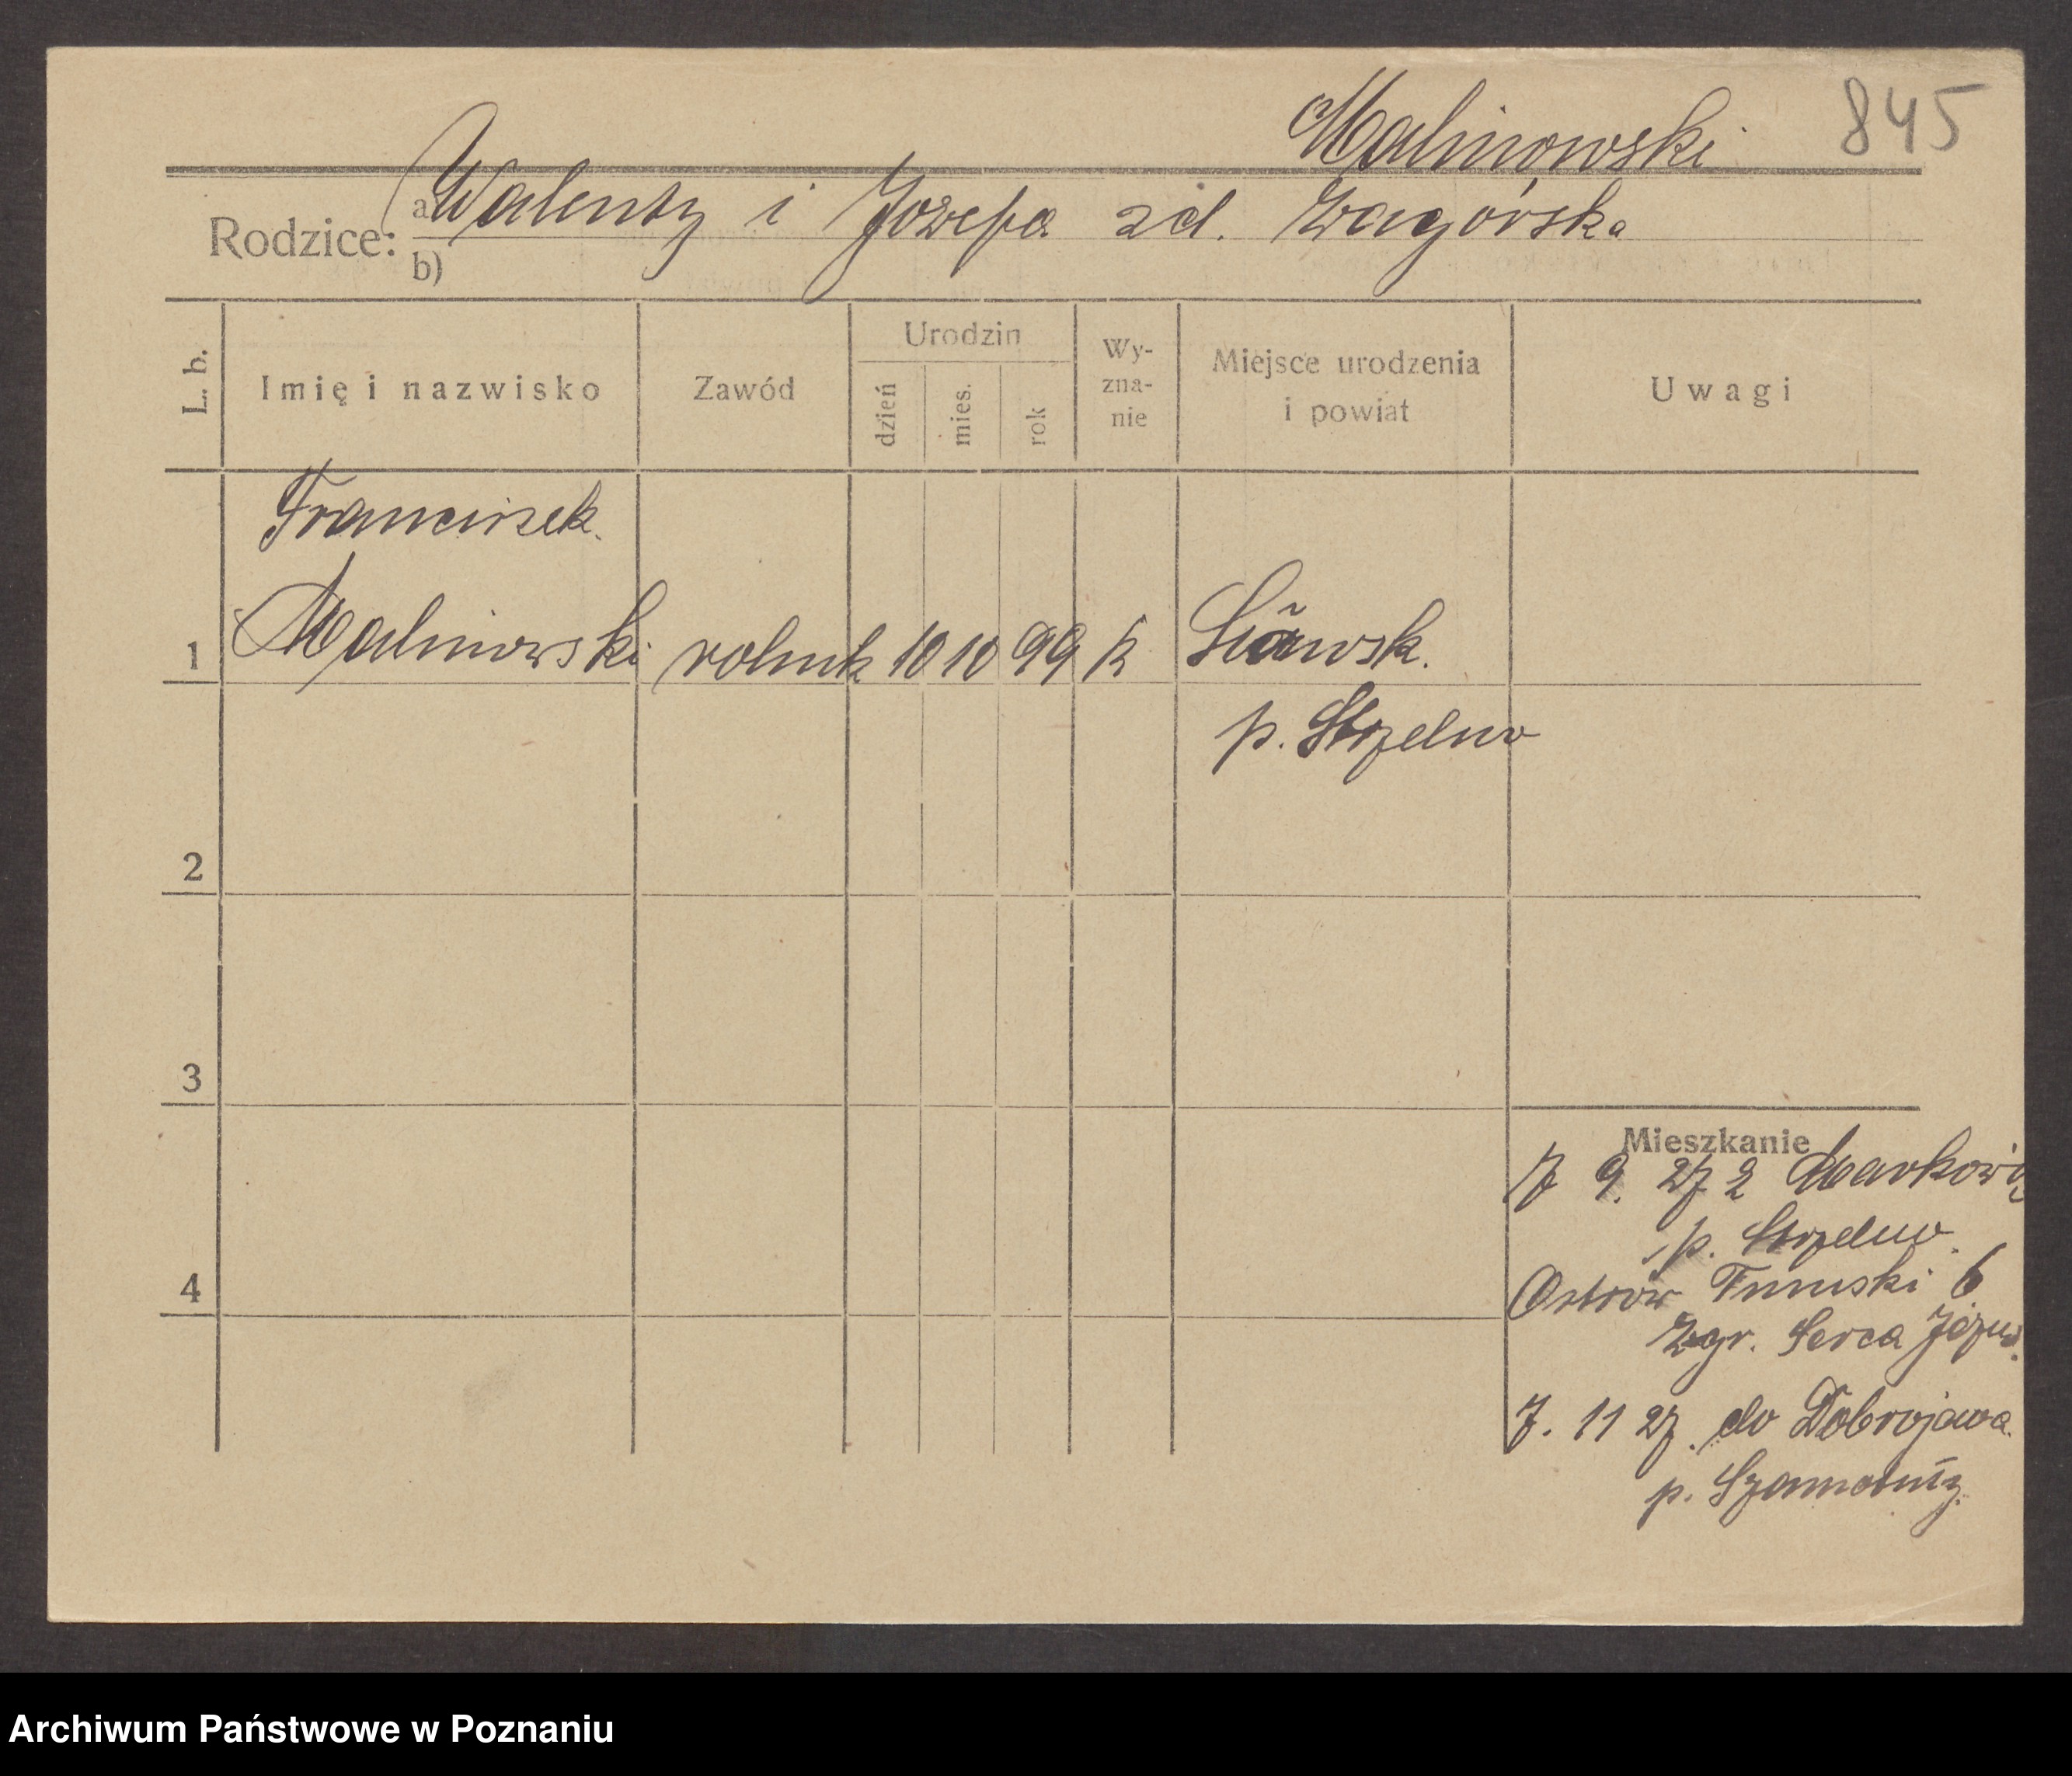 845
Malinowski
Rodzice: a) Walenty i Józefa zd. Zagórska
b)
L. b.
Imię i nazwisko
Zawód
Urodzin
dzień
mies.
rok
Wy-
zna-
nie
Miejsce urodzenia
i powiat
Uwagi
Franciszek
1 Malinowski rolnik 10 10 99 k
p. Strzelno
2
3
4
Mieszkanie
9. 27 z Markowic
p. Strzelno
Ostrów Tumski 6
Zgr. Serca Jezus.
7. 11 27. do Dobrojewa
p. Szamotuły
Archiwum Państwowe w Poznaniu